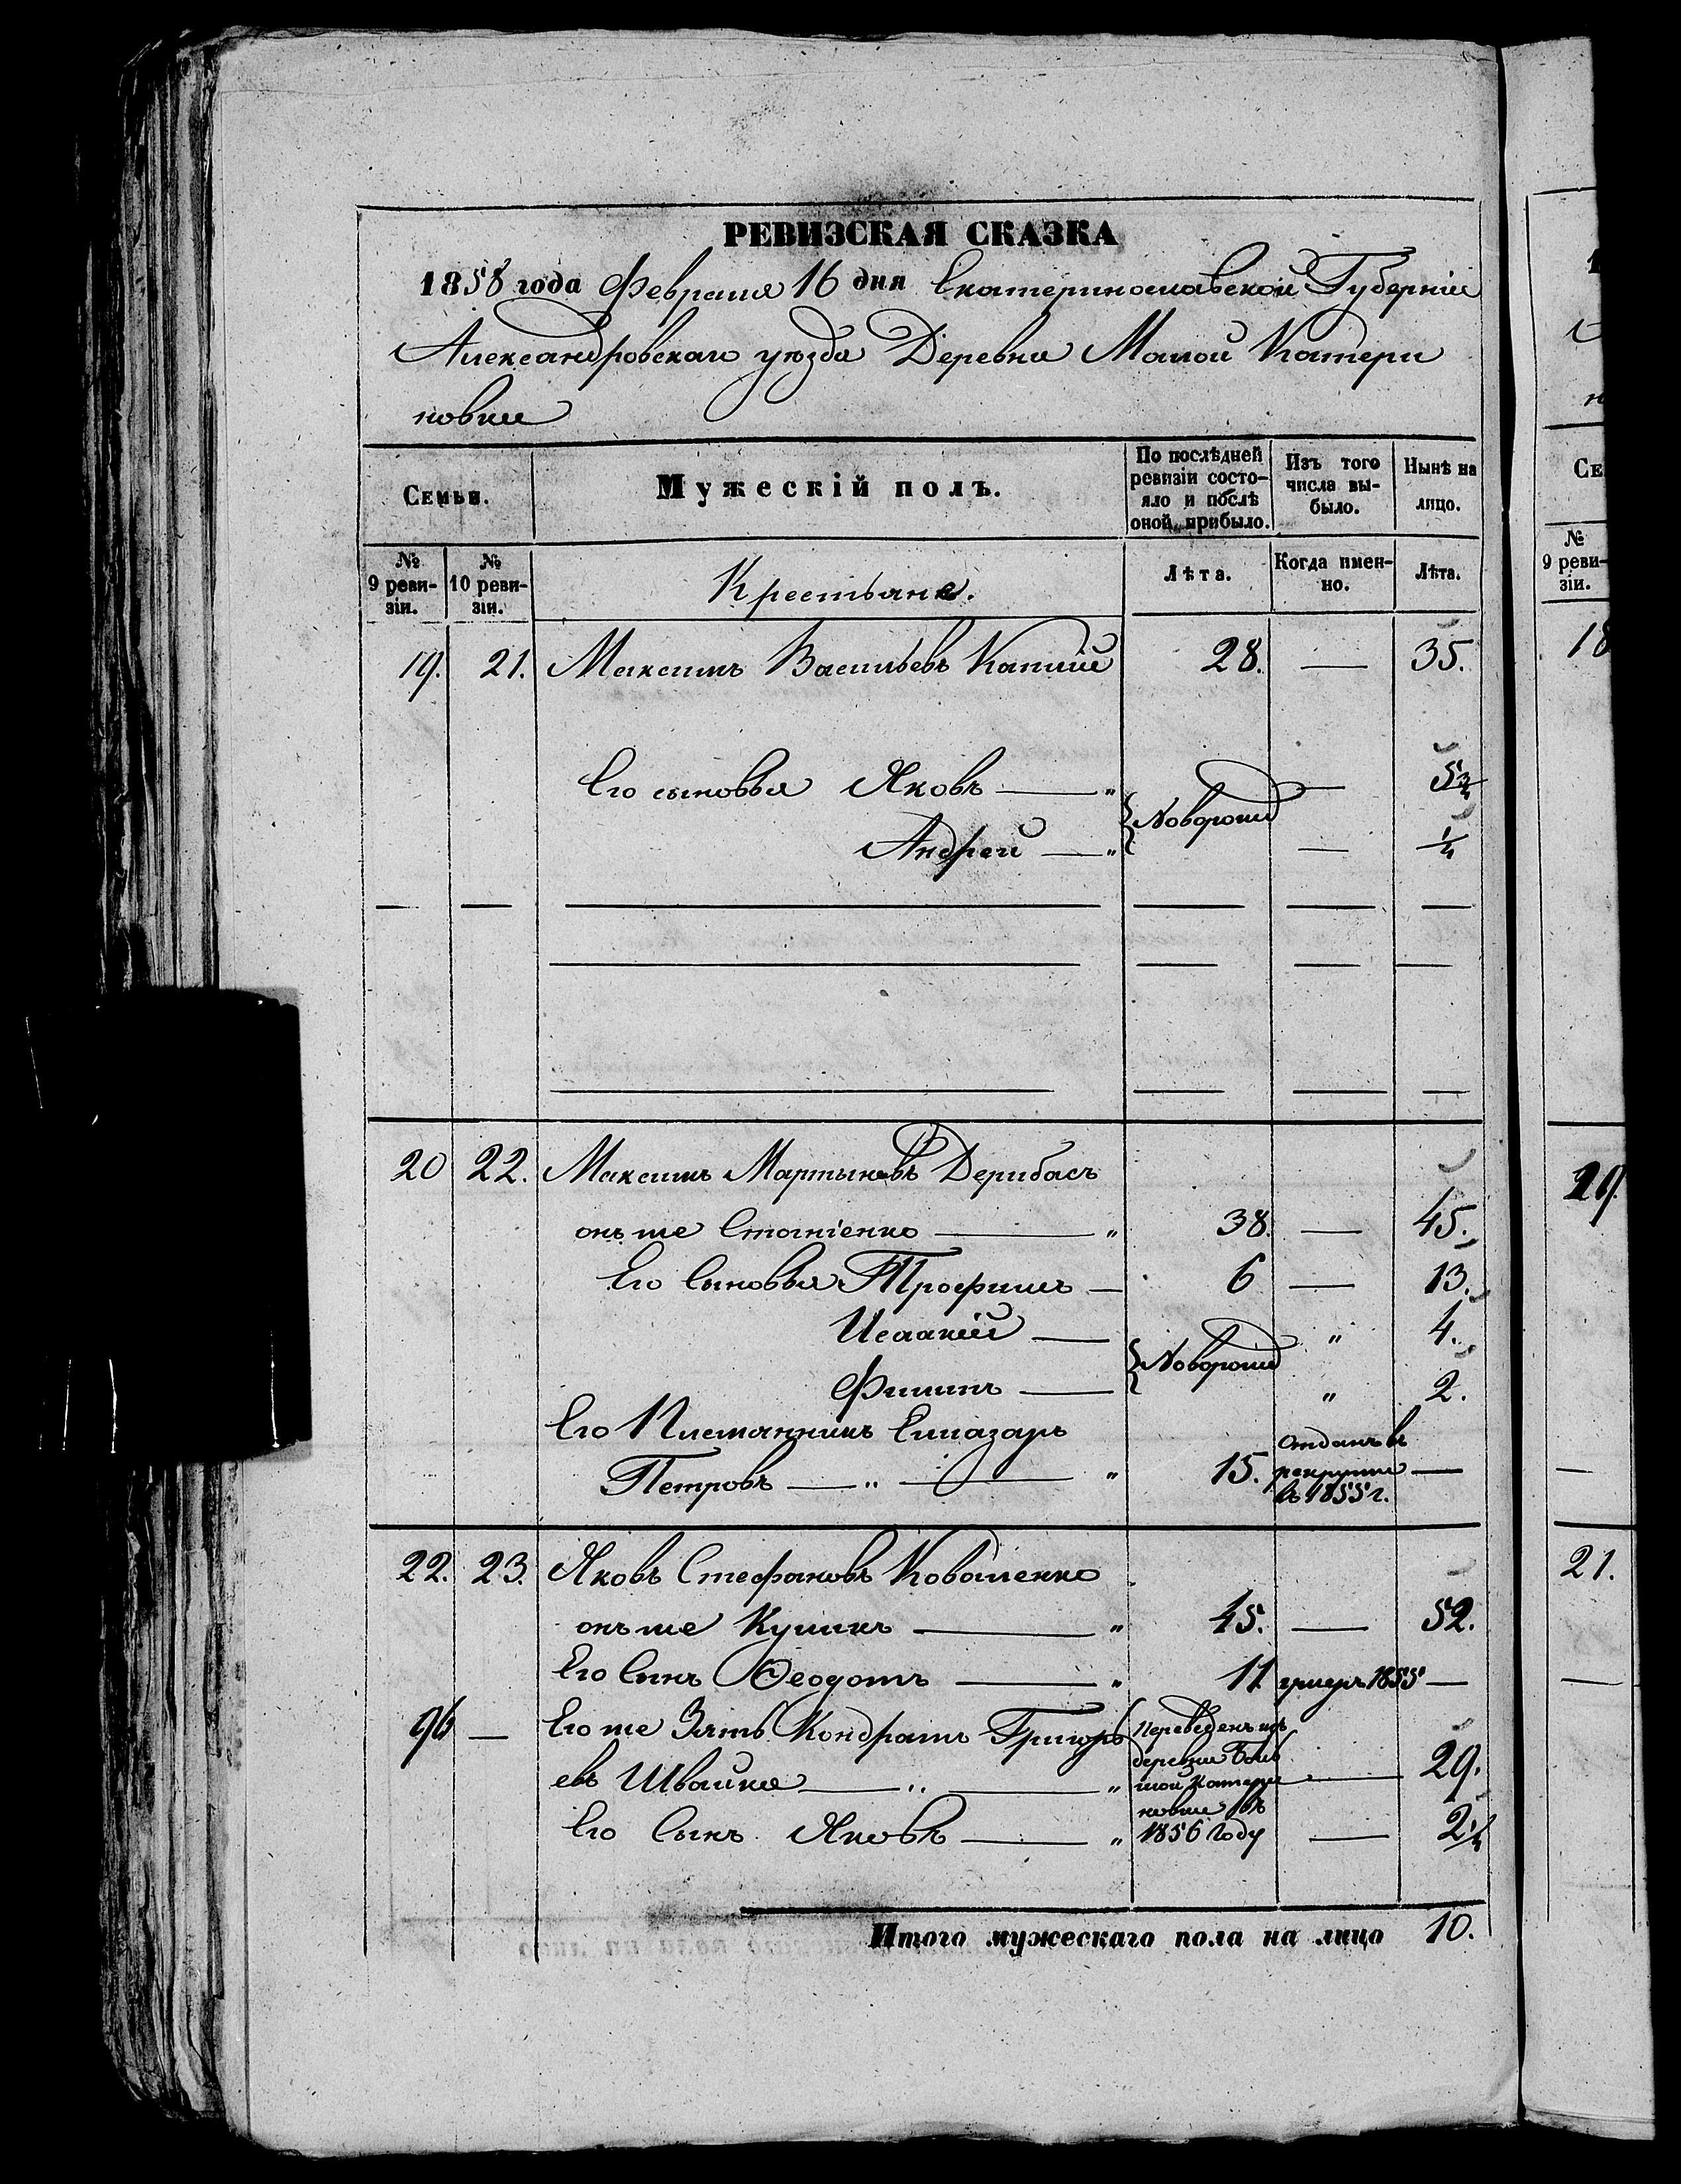 РЕВИЗСКАЯ СКАЗКА
1858 года Февраля 16 дня Екатеринославской Губерніи
Александровскаго уѣзда Деревни Малой Катери
новки
Семьи.
Мужескій полъ.
По послѣдней ревизіи состо-
яло и послѣ
оной прибыло.
Изъ того
числа вы-
было.
Нынѣ на
лицо.
№
9 реви-
зіи.
№
10 реви-
зіи.
Крестьяне.
Лѣта.
Когда имен-
но.
Лѣта.
19. 21. Максимъ Васильевъ 28. — 35.
Его сыновья Яковъ — " Новорожд — 5¾
Андрей — " — ¼
20 22. Максимъ Мартыновъ Дерибасъ
онъ же 38. — 45.
Его Сыновья Трофимъ — 6 — 13.
Исаакій — Новорожд " 4.
Филипъ — " 2.
Его Племянникъ Елиазаръ
Петровъ — " — " 15. отданъ въ
рекруты —
въ 1855 г.
22. 23. Яковъ Стефановъ Коваленко
онъ же Куликъ — " 45. — 52.
Его Сынъ Феодотъ — " 11 умеръ 1855 —
96 — Его же Зять Кондратъ Григорь
евъ Швайка — " — " 29.
Переведенъ изъ
деревни Боль
шой Катери
новки въ
1856 году
Его Сынъ Яковъ — " — 2¼
Итого мужескаго пола на лицо 10.
Се
№
9 реви-
зіи.
18
21.